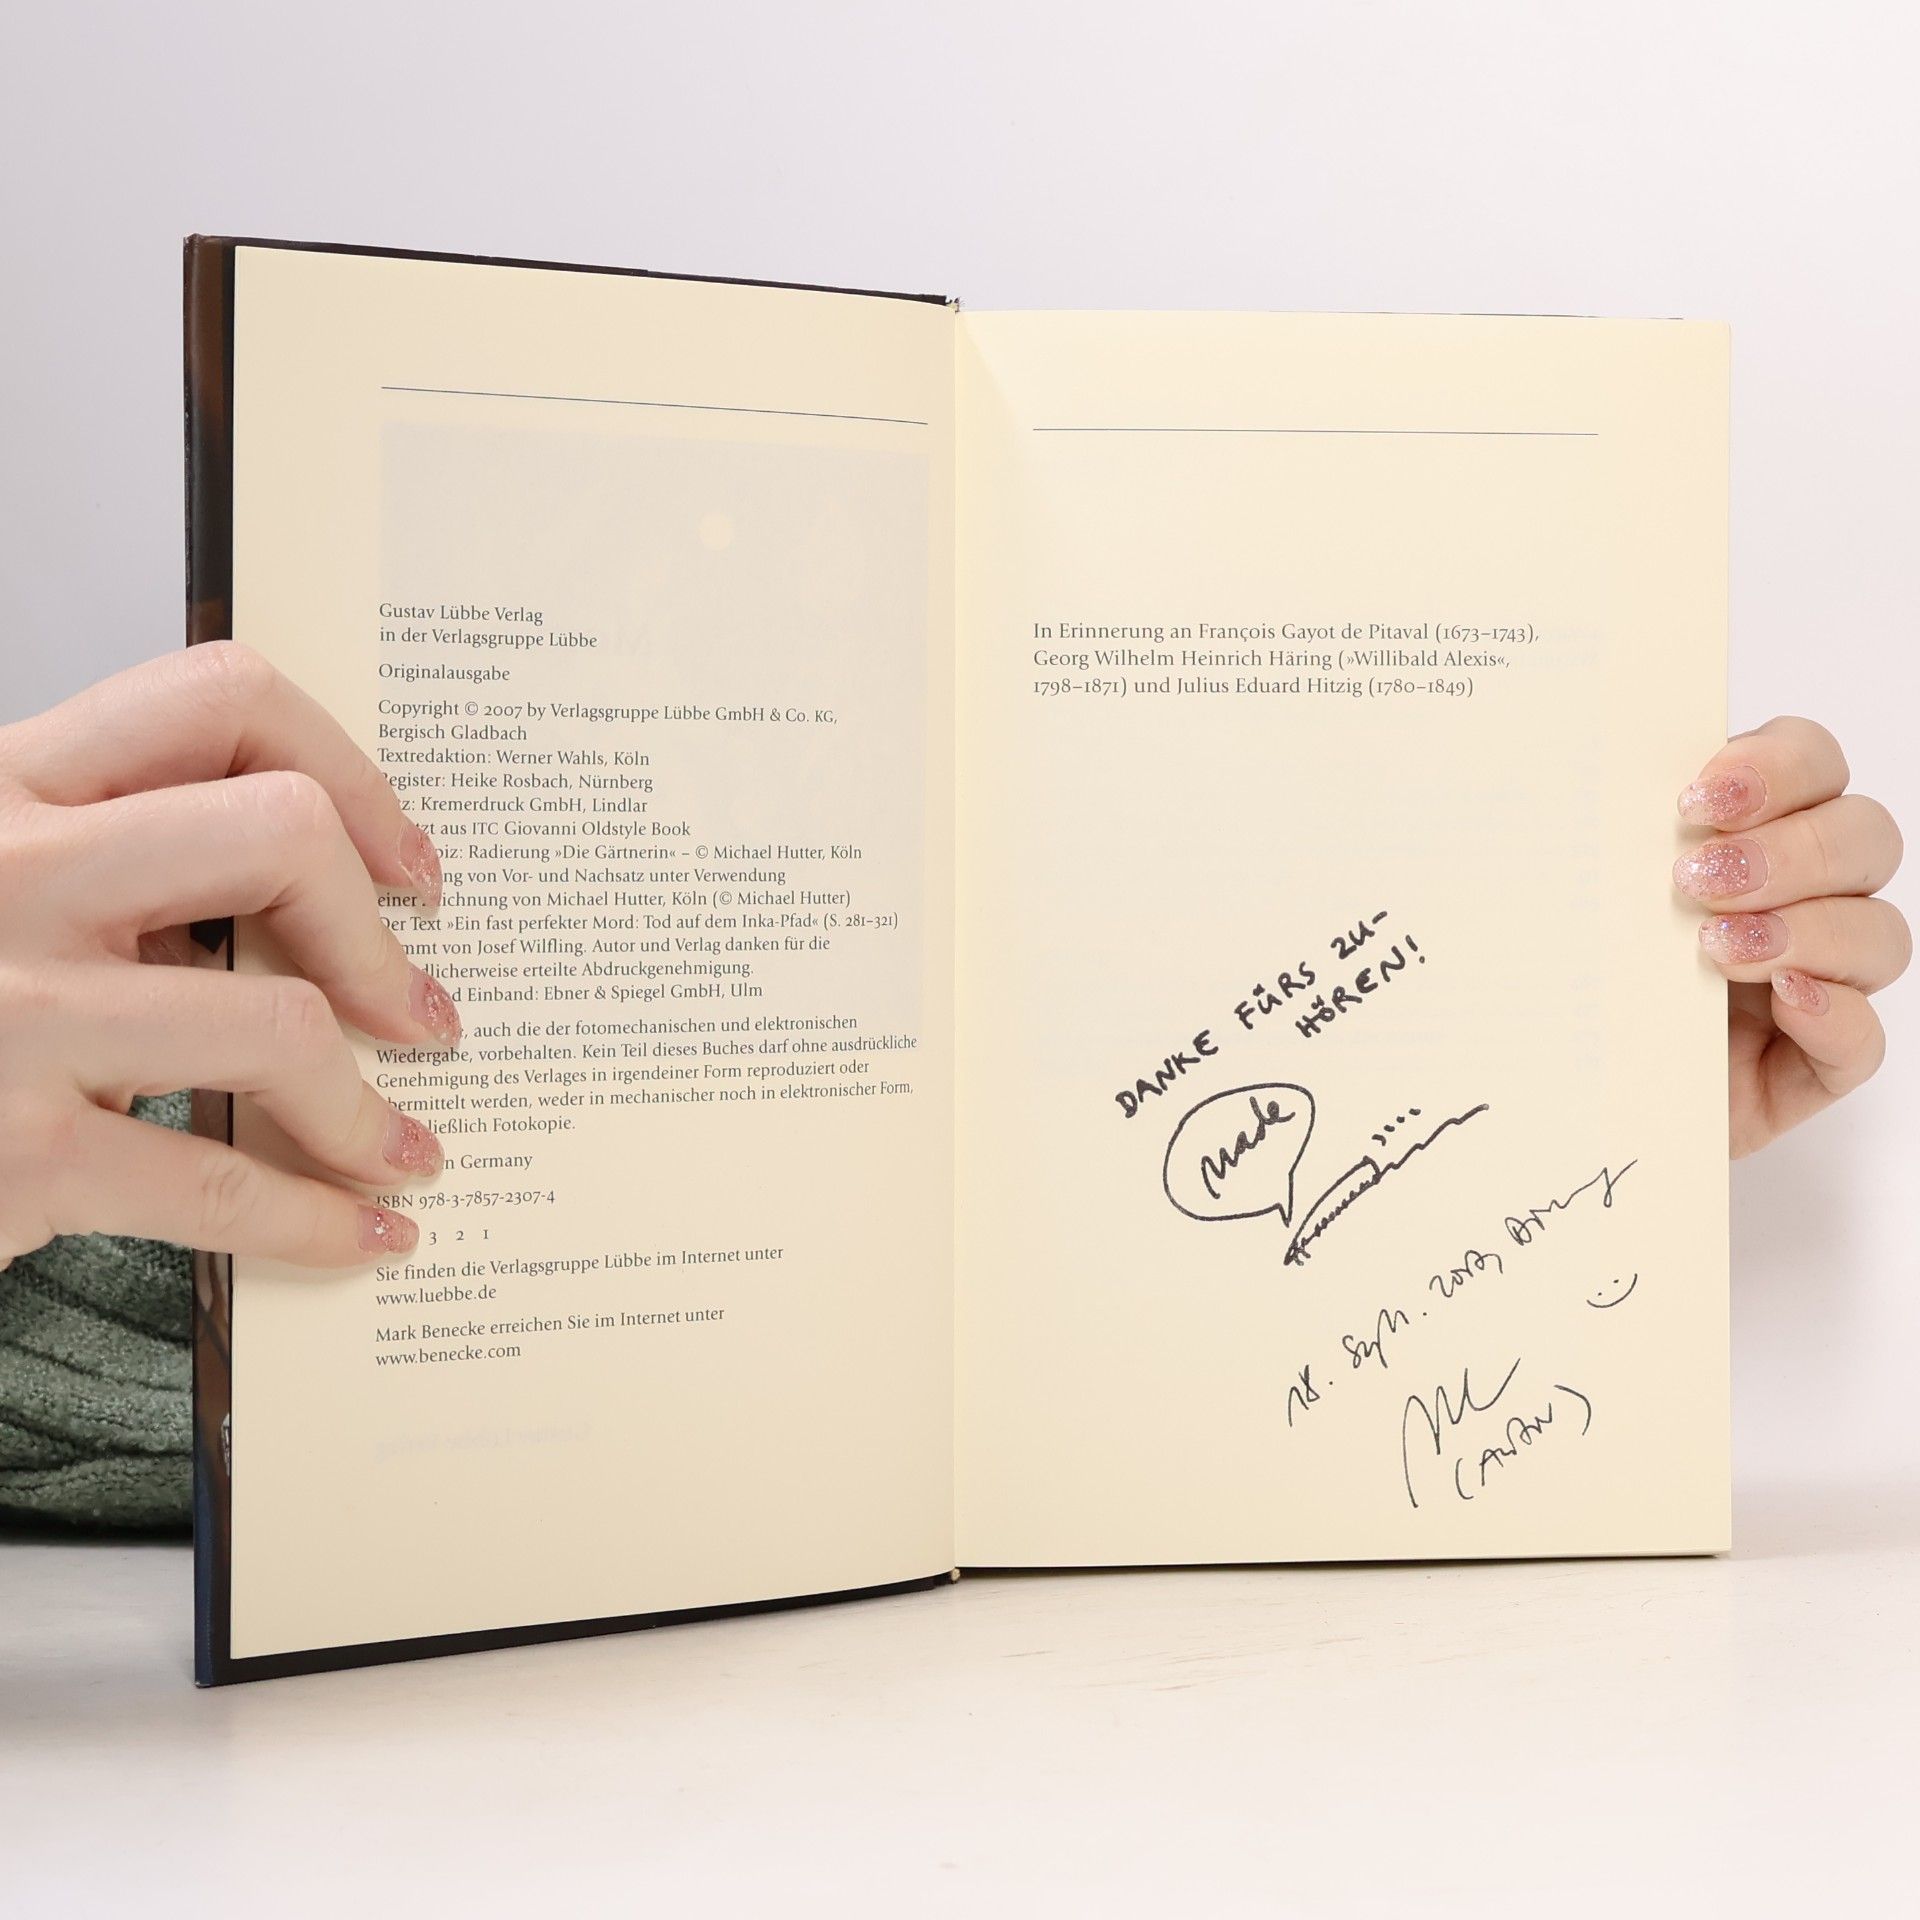 Gustav Lübbe Verlag
in der Verlagsgruppe Lübbe
Originalausgabe
Copyright © 2007 by Verlagsgruppe Lübbe GmbH & Co. KG,
Bergisch Gladbach
Textredaktion: Werner Wahls, Köln
Register: Heike Rosbach, Nürnberg
Kremerdruck GmbH, Lindlar
aus ITC Giovanni Oldstyle Book
Radierung »Die Gärtnerin« – © Michael Hutter, Köln
von Vor- und Nachsatz unter Verwendung
einer Zeichnung von Michael Hutter, Köln (© Michael Hutter)
Der Text »Ein fast perfekter Mord: Tod auf dem Inka-Pfad« (S. 281–321)
von Josef Wilfling. Autor und Verlag danken für die
erteilte Abdruckgenehmigung.
Einband: Ebner & Spiegel GmbH, Ulm
auch die der fotomechanischen und elektronischen
Wiedergabe, vorbehalten. Kein Teil dieses Buches darf ohne ausdrückliche
Genehmigung des Verlages in irgendeiner Form reproduziert oder
übermittelt werden, weder in mechanischer noch in elektronischer Form,
Fotokopie.
Germany
ISBN 978-3-7857-2307-4
3 2 1
Sie finden die Verlagsgruppe Lübbe im Internet unter
www.luebbe.de
Mark Benecke erreichen Sie im Internet unter
www.benecke.com
In Erinnerung an François Gayot de Pitaval (1673–1743),
Georg Wilhelm Heinrich Häring (»Willibald Alexis«,
1798–1871) und Julius Eduard Hitzig (1780–1849)
DANKE FÜRS ZU-
HÖREN!
Made
18. Sept.